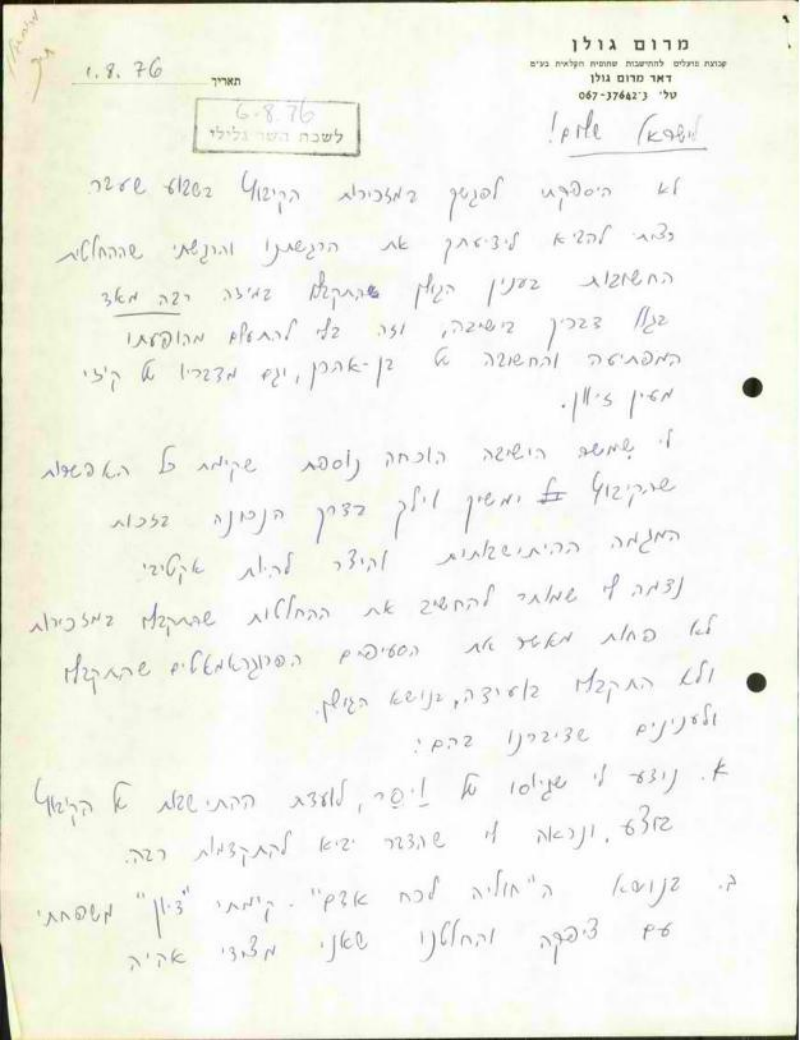 מרום גולן
קבוצת פועלים להתישבות שתופית חקלאית בע״מ
דאר מרום גולן
טל׳ 067-37642-3
תאריך 1.8.76
6-8.76
לשכת השר גלילי
לישראל שלום!
לא הספקתי לפגשך במזכירות הקיבוץ בשבוע שעבר.
רציתי להביא לידיעתך את הרגשתנו והרגשתי שההחלטות
החשובות בענין הגולן שהתקבלו במידה רבה מאד
בגלל דבריך בישיבה, וזה בלי להתעלם מהופעתו
המפתיעה והחשובה של בן-אהרן, וגם מדבריו של
מעין צבי.
לי שמשה הישיבה הוכחה נוספת שקימת כל האפשרות
שהקיבוץ ימשיך וילך בדרך הנכונה בזכות
המגמה ההתישבותית והיצר להיות אקטיבי.
נדמה לי שמותר להחשיב את ההחלטות שהתקבלו במזכירות
לא פחות מאשר את הסעיפים הפרוגרמטים שהתקבלו
ולא התקבלו בועידה, בנושא הגולן.
ולענינים שדיברנו בהם:
א. נודע לי שגיוסו של לועדת ההתישבות של הקיבוץ
בוצע, ונראה לי שהדבר יביא להתקדמות רבה.
ב. בנושא ה"חוליה לכח אדם" - קימתי "דיון" משפחתי
עם ציפקה והחלטנו שאני מצידי אהיה